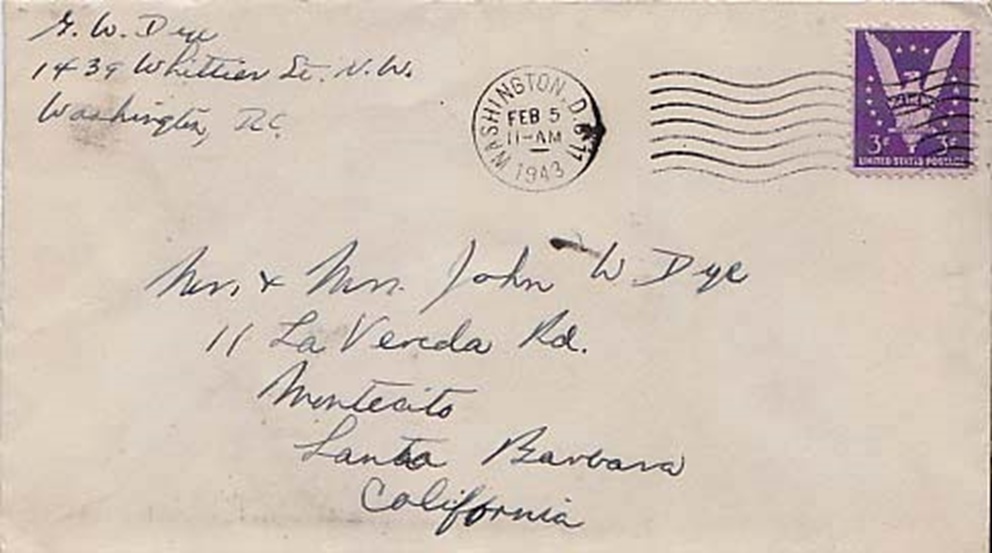 G. W. Dye
1439 Whittier St. N.W.
Washington, D.C.
WASHINGTON, D.C. 11
FEB 5
11-AM
1943
3¢ 3¢
UNITED STATES POSTAGE
Mr. & Mrs. John W Dye
11 La Vereda Rd.
Montecito
Santa Barbara
California